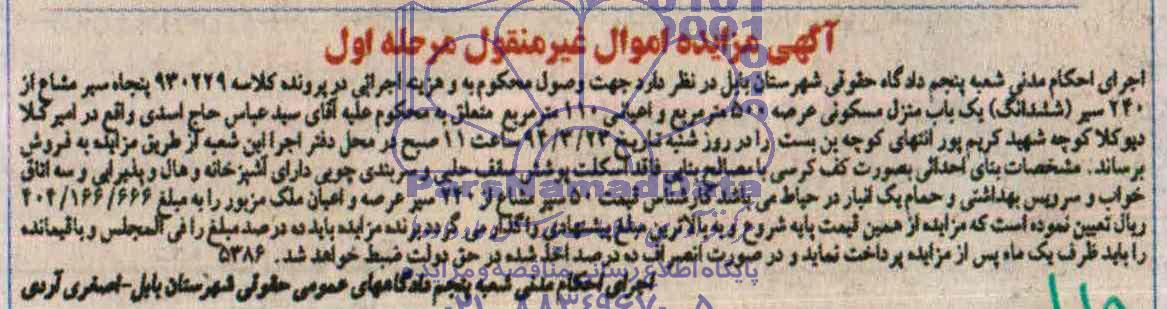 آگهی مزایده اموال غیرمنقول مرحله اول
اجرای احکام مدنی شعبه پنجم دادگاه حقوقی شهرستان بابل در نظر دارد جهت وصول محکوم به و هزینه اجرائی در پرونده کلاسه ۹۳۰۲۲۹ پنجاه سیر مشاع از
۲۴۰ سیر (ششدانگ) یک باب منزل مسکونی عرصه مترمربع و اعیانی ۱۱۰ مترمربع متعلق به محکوم علیه آقای سیدعباس حاج اسدی واقع در امیرکلا
دیوکلا کوچه شهید کریم پور انتهای کوچه بن بست را در روز شنبه تاریخ ساعت ۱۱ صبح در محل دفتر اجرا این شعبه از طریق مزایده به فروش
برساند. مشخصات بنای احداثی بصورت کف کرسی با مصالح بنایی فاقد اسکلت پوشش سقف حلبی و سربندی چوبی دارای آشپزخانه و هال و پذیرایی و سه اتاق
خواب و سرویس بهداشتی و حمام یک انبار در حیاط می باشد کارشناس قیمت ۵۰ سیر مشاع از ۲۴۰ سیر عرصه و اعیان ملک مزبور را به مبلغ ۲۰۲/۱۶۶/۶۶۶
ریال تعیین نموده است که مزایده از همین قیمت پایه شروع و به بالاترین مبلغ پیشنهادی واگذار می گردد برنده مزایده باید ده درصد مبلغ را فی المجلس و باقیمانده
را باید ظرف یک ماه پس از مزایده پرداخت نماید و در صورت انصراف ده درصد اخذ شده در حق دولت ضبط خواهد شد. ۵۳۸۶
اجرای احکام مدنی شعبه پنجم دادگاههای عمومی حقوقی شهرستان بابل-اصغری آردی
ParsNamadData
پایگاه اطلاع رسانی مناقصه و مزایده